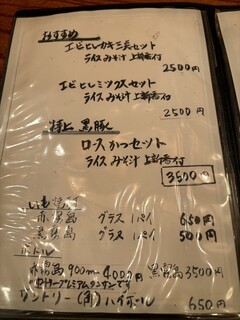 おすすめ
エビヒレカキ三点セット
ライス みそ汁 上新香付
2500円
エビヒレミックスセット
ライス みそ汁 上新香付
2500円
特上 黒豚
ロースかつセット
ライス みそ汁 上新香付
3500円
いも焼酎
赤霧島 グラス1パイ 650円
黒霧島 グラス1パイ 500円
ボトル
赤霧島 900ml 4000円 黒霧島 3500円
サントリー(角)ハイボール 650円